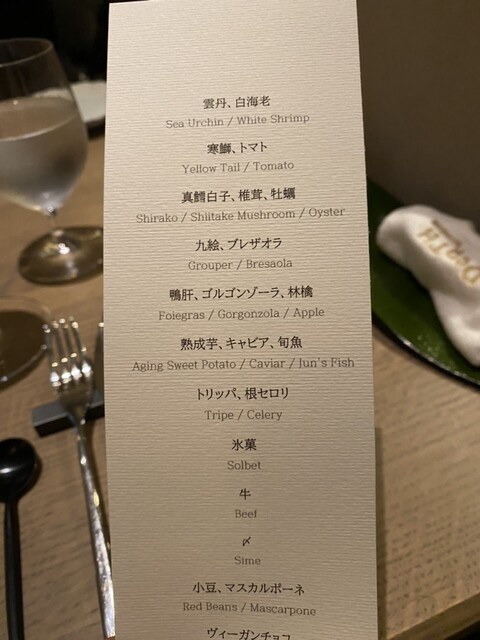 雲丹、白海老
Sea Urchin / White Shrimp
寒鰤、トマト
Yellow Tail / Tomato
真鱈白子、椎茸、牡蠣
Shirako / Shiitake Mushroom / Oyster
九絵、ブレザオラ
Grouper / Bresaola
鴨肝、ゴルゴンゾーラ、林檎
Foiegras / Gorgonzola / Apple
熟成芋、キャビア、旬魚
Aging Sweet Potato / Caviar / Jun's Fish
トリッパ、根セロリ
Tripe / Celery
氷菓
Solbet
牛
Beef
〆
Sime
小豆、マスカルポーネ
Red Beans / Mascarpone
ヴィーガンチョコ